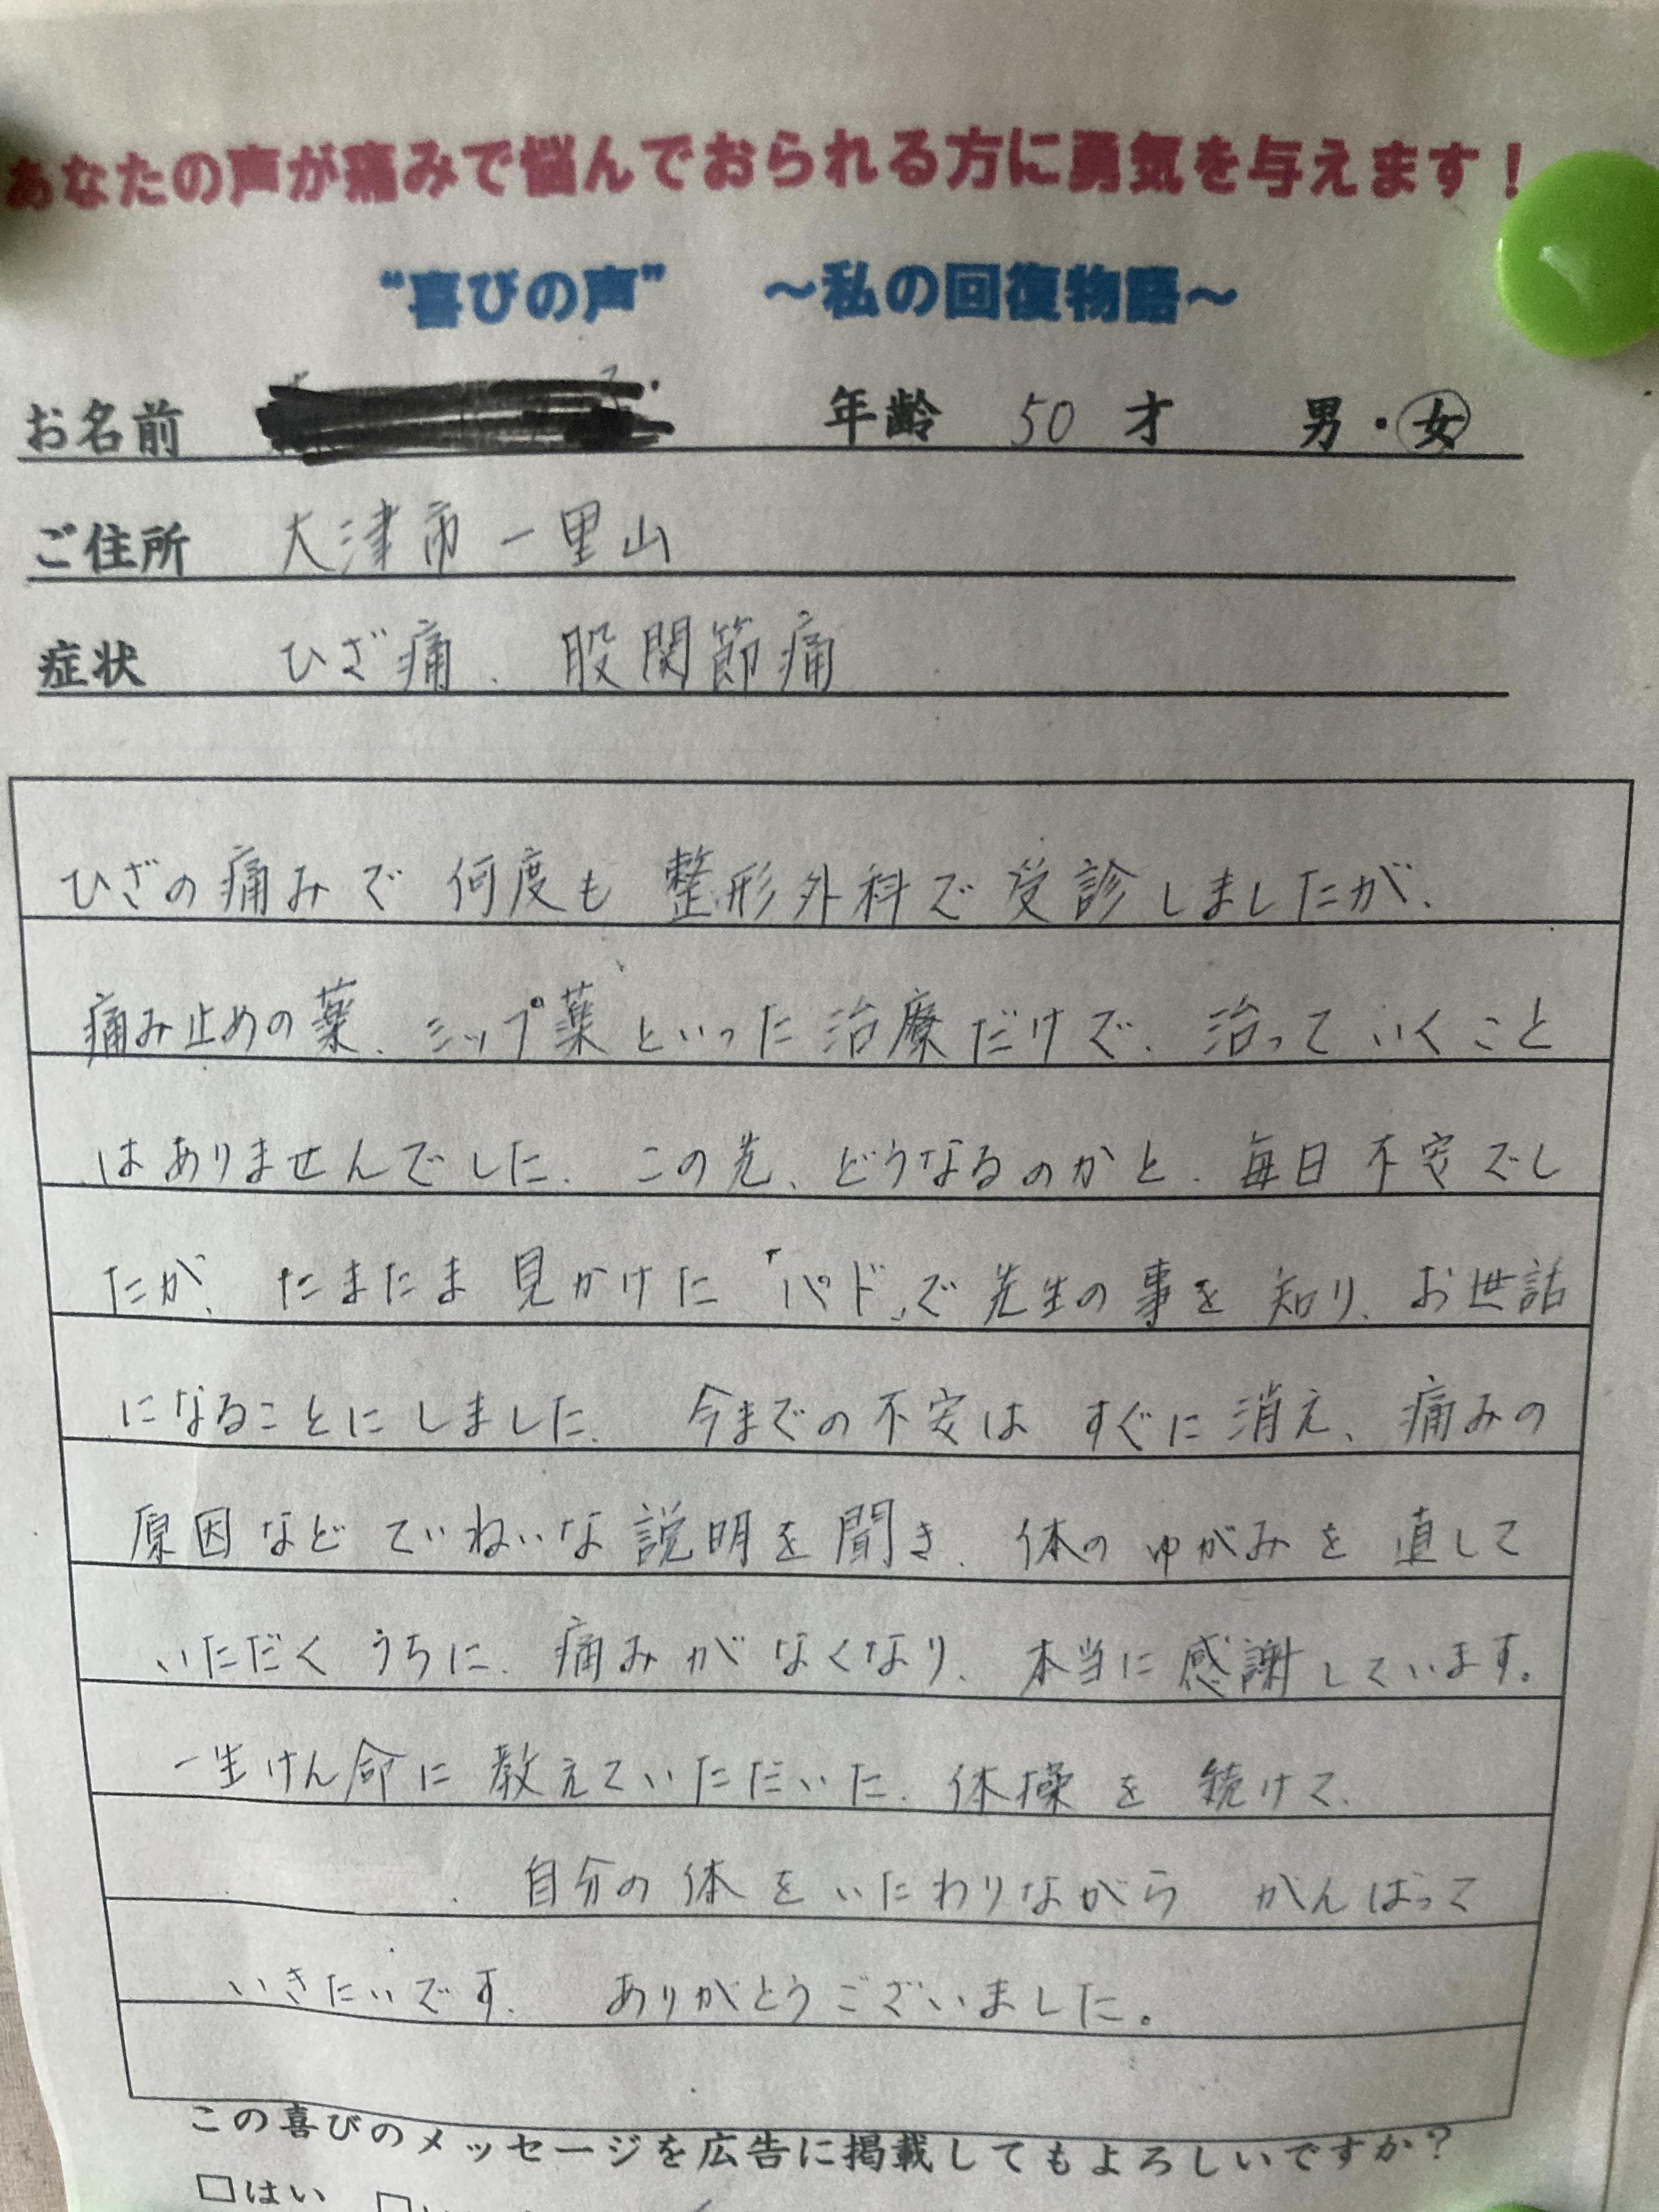 あなたの声が痛みで悩んでおられる方に勇気を与えます！
“喜びの声” ～私の回復物語～
お名前 年齢 50 才 男・女
ご住所 大津市一里山
症状 ひざ痛、股関節痛
ひざの痛みで何度も整形外科で受診しましたが、
痛み止めの薬、シップ薬といった治療だけで、治っていくこと
はありませんでした。この先、どうなるのかと、毎日不安でし
たが、たまたま見かけた「パド」で先生の事を知り、お世話
になることにしました。今までの不安はすぐに消え、痛みの
原因などていねいな説明を聞き、体のゆがみを直して
いただくうちに、痛みがなくなり、本当に感謝しています。
一生けん命に教えていただいた、体操を続けて、
自分の体をいたわりながらがんばって
いきたいです。ありがとうございました。
この喜びのメッセージを広告に掲載してもよろしいですか？
□はい □